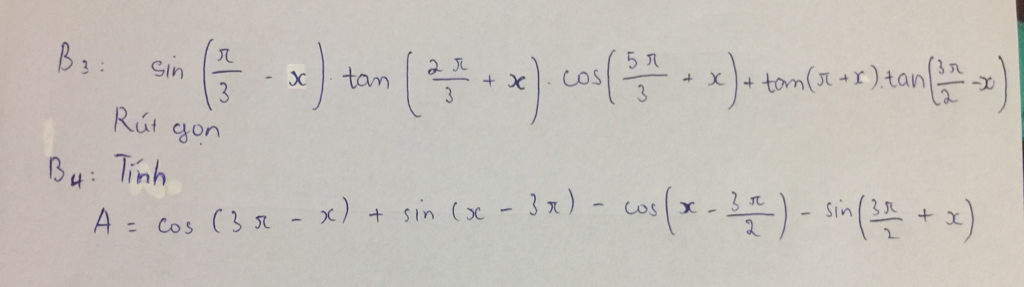 B3: sin (π/3 - x) . tan (2π/3 + x) . cos(5π/3 + x) + tan(π + x).tan(3π/2 - x)
Rút gọn
B4: Tính
A = cos (3π - x) + sin (x - 3π) - cos(x - 3π/2) - sin(3π/2 + x)